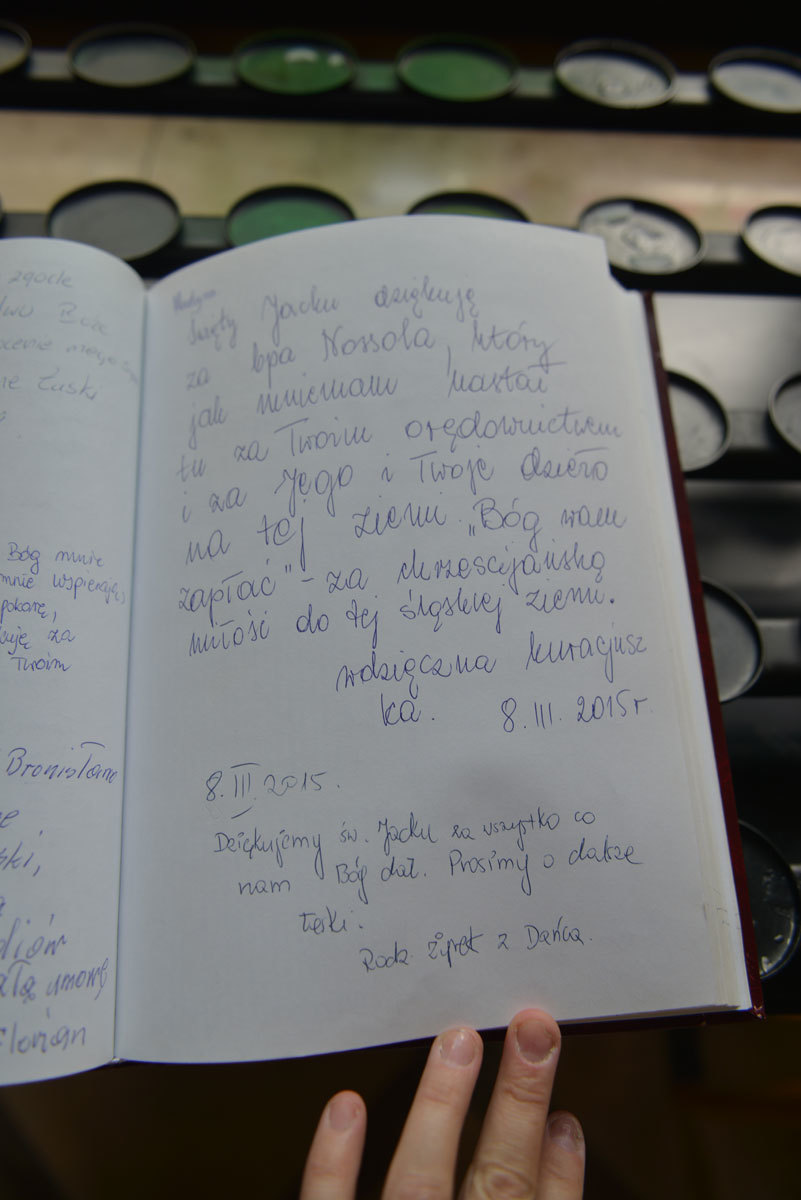 zgodę
Boże
łaski
Bóg mnie
mnie wspierają,
pokorę,
za
Twoim
Bronisława
umowę
Florian
Święty Jacku dziękuję
za bpa Nossola, który
jak mniemam nastał
tu za Twoim orędownictwem
i za Jego i Twoje dzieło
na tej ziemi. „Bóg wam
zapłać" – za chrześcijańską
miłość do tej śląskiej ziemi.
wdzięczna kuracjusz
ka. 8. III. 2015 r.
8. III 2015.
Dziękujemy św. Jacku za wszystko co
nam Bóg dał. Prosimy o dalsze
łaski.
Rodz. z Dańca.